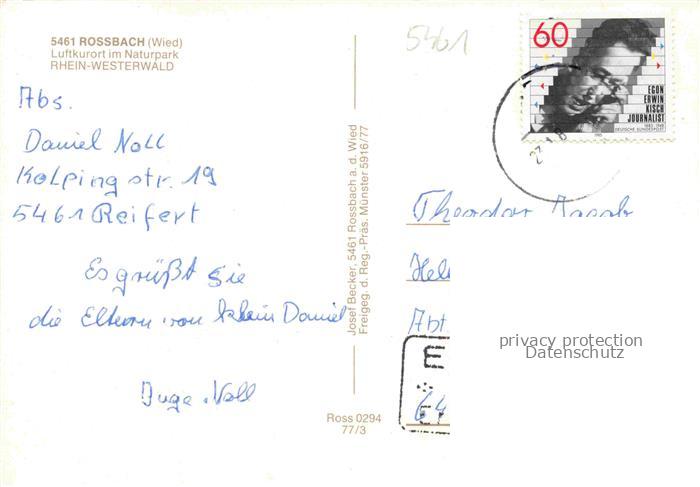 5461 ROSSBACH (Wied)
Luftkurort im Naturpark
RHEIN-WESTERWALD
Abs.
Daniel Noll
Kolpingstr. 19
5461 Reifert
Es grüßt Sie
die Eltern von klein Daniel
Inge Noll
Josef Becker, 5461 Rossbach a. d. Wied
Freigeg. d. Reg.-Präs. Münster 5916/77
Ross 0294
77/3
5461
60
EGON
ERWIN
KISCH
JOURNALIST
1885-1948
DEUTSCHE BUNDESPOST
1985
Theodor
Hel
Abt
64
privacy protection
Datenschutz